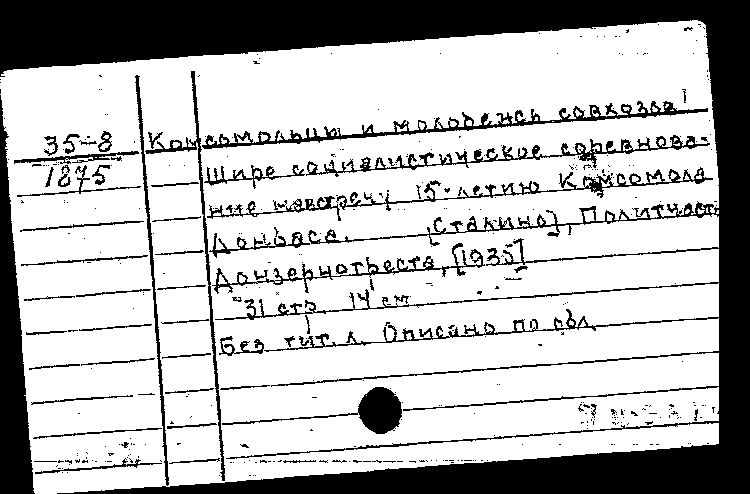 35-8
1875
Комсомольцы и молодежь совхозов!
Шире социалистическое соревнова-
ние навстречу 15-летию Комсомола
Донбаса. [Сталино], Политчасть
Донзернотреста, [1935]
31 стр. 14 см
Без тит. л. Описано по обл.